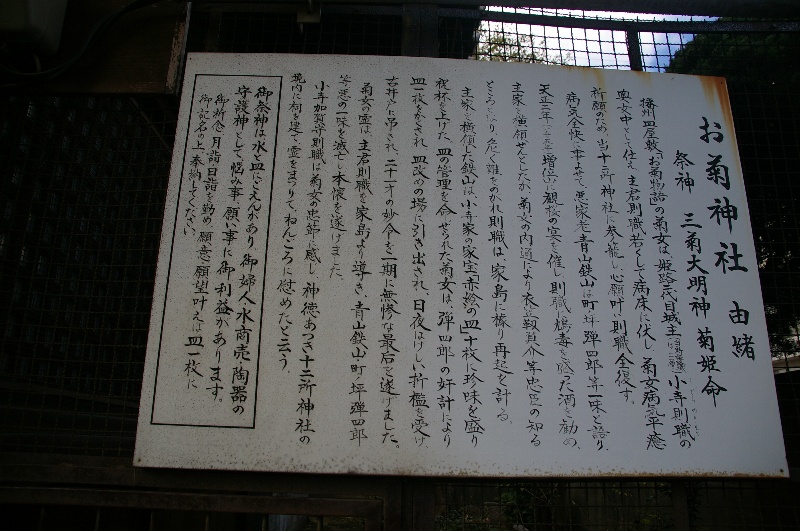 お菊神社 由緒
祭神 三菊大明神 菊姫命
播州皿屋敷「お菊物語」の菊女は、姫路六代目城主小寺則職の
奥女中として仕え、主君則職若くして病床に伏し、菊女病気平癒
祈願のため、当十二所神社に参篭し、心願叶い則職全復す。
病気全快に事よせて、悪家老青山鉄山は、町坪弾四郎等一味と語り、
増位に観桜の宴を催し、則職に鴆毒を盛った酒を勧め、
主家を横領せんとしたが、菊女の内通により衣笠靱負介等忠臣の知る
ところとなり、危く難をのがれ則職は、家島に移り再起を計る。
主家を横領した鉄山は、小寺家の家宝「赤絵の皿」十枚に珍味を盛り
祝杯を上げた、皿の管理を命ぜられた菊女は、弾四郎の奸計により
皿一枚をかくされ、皿改めの場に引き出され、日夜はげしい折檻を受け、
古井戸に吊され、二十一才の妙令を一期に無惨な最后を遂げました。
菊女の霊は、主君則職を家島より導き、青山鉄山・町坪弾四郎
等悪の一味を滅亡し本懐を遂げました。
小寺加賀守則職は菊女の忠節に感じ、神徳あつき十二所神社の
境内に祠を建て霊をまつりてねんごろに慰めたと云う。
御祭神は水と皿にごえんがあり、御婦人、水商売、陶器の
守護神として、悩み事、願い事に御利益があります。
御祈念、月詣、日詣を勤め、願意、願望叶えば皿一枚に
御記名の上、奉納してください。